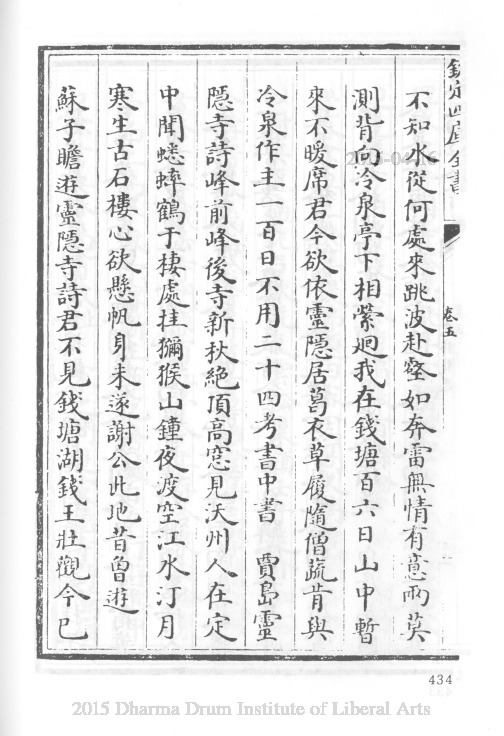 欽定四庫全書
卷五
不知水從何處來跳波赴壑如奔雷無情有意兩莫
測背向冷泉亭下相縈迴我在錢塘百六日山中暫
來不暖席君今欲依靈隱居葛衣草屨隨僧蔬肯與
冷泉作主一百日不用二十四考書中書 賈島靈
隱寺詩峰前峰後寺新秋絶頂髙窓見沃州人在定
中聞蟋蟀鶴于棲處挂獼猴山鐘夜渡空江水汀月
寒生古石樓心欲懸帆身未遂謝公此地昔曽遊
蘇子瞻遊靈隱寺詩君不見錢塘湖錢王壯觀今已
434
2015 Dharma Drum Institute of Liberal Arts